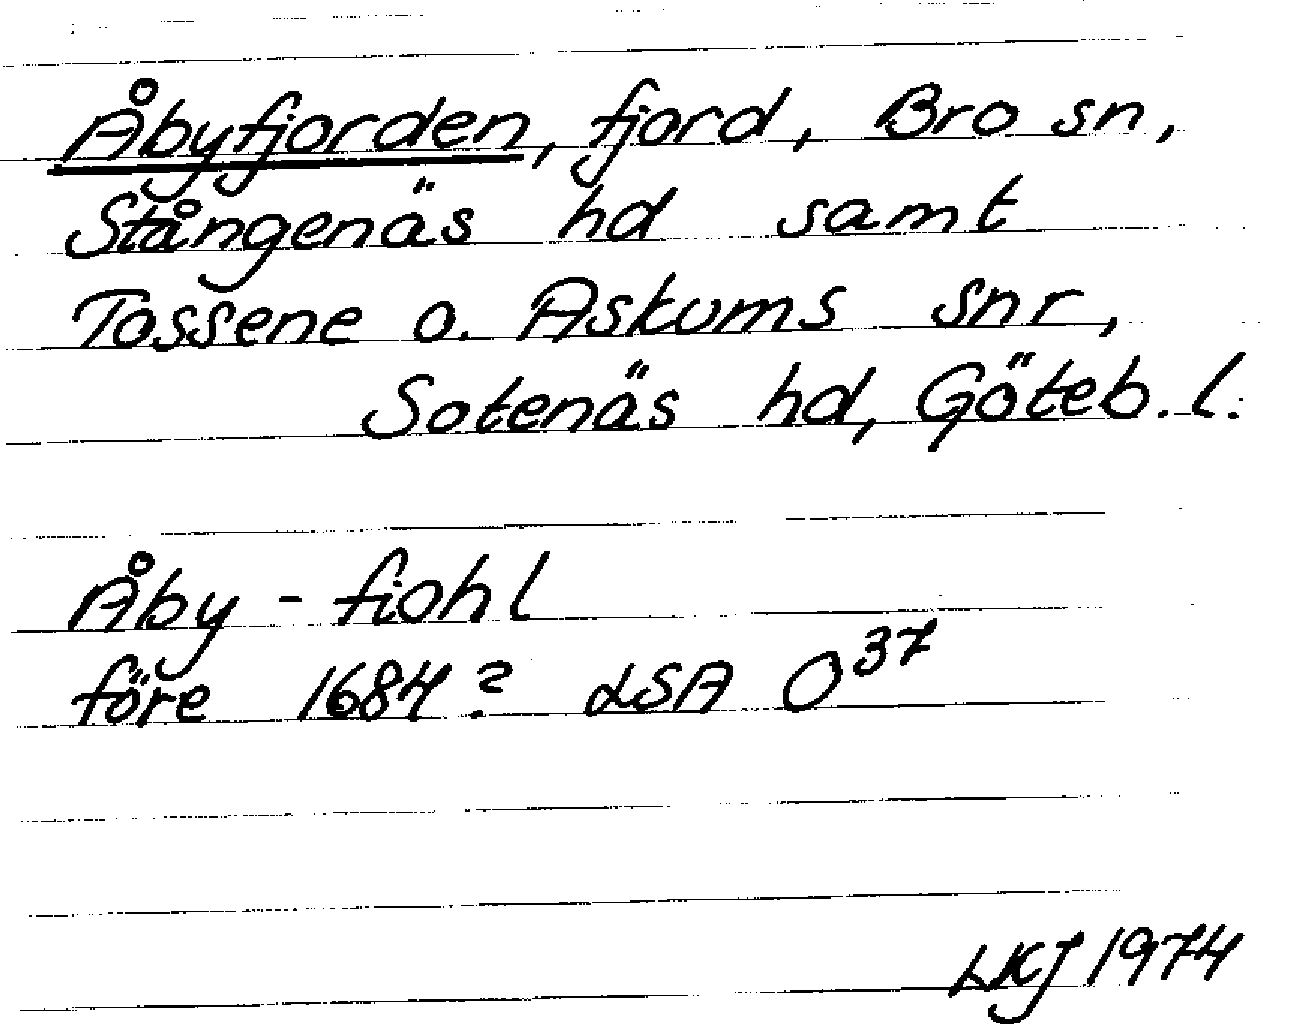 Åbyfjorden, fjord, Bro sn,
Stångenäs hd samt
Tossene o. Askums snr,
Sotenäs hd, Göteb. l.
Åby - fiohl
före 1684? LSA O37
LKJ 1974